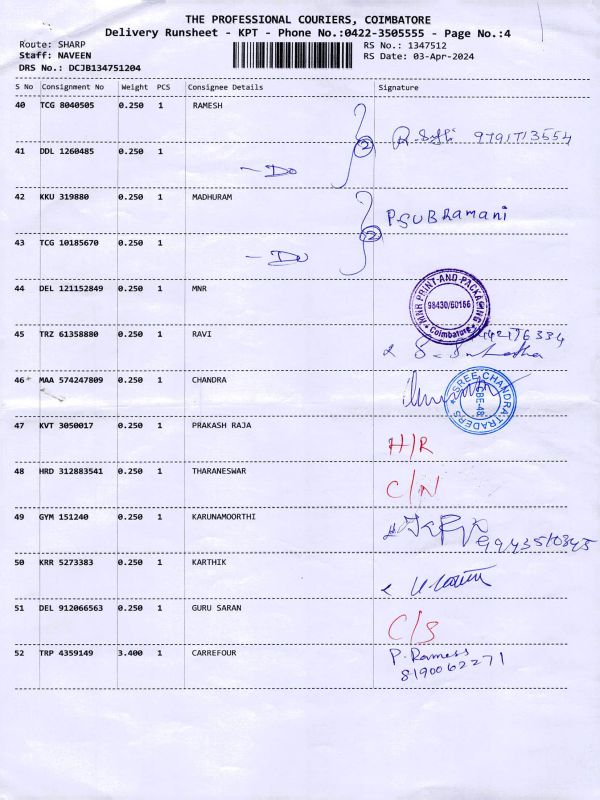 THE PROFESSIONAL COURIERS, COIMBATORE
Delivery Runsheet - KPT - Phone No.:0422-3505555 - Page No.:4
Route: SHARP RS No.: 1347512
Staff: NAVEEN RS Date: 03-Apr-2024
DRS No.: DCJB134751204
S No Consignment No Weight PCS Consignee Details Signature
40 TCG 8040505 0.250 1 RAMESH
9791713554
2
41 DDL 1260485 0.250 1
- Do
42 KKU 319880 0.250 1 MADHURAM
P SUBRamani
2
43 TCG 10185670 0.250 1
- Do
44 DEL 121152849 0.250 1 MNR
MNR PRINT AND PACKAGING
98430/60166
* Coimbatore *
45 TRZ 61358880 0.250 1 RAVI
46 MAA 574247809 0.250 1 CHANDRA
* SREE CHANDRA TRADERS *
CBE-48
47 KVT 3050017 0.250 1 PRAKASH RAJA
H/R
48 HRD 312883541 0.250 1 THARANESWAR
C/N
49 GYM 151240 0.250 1 KARUNAMOORTHI
9943510345
50 KRR 5273383 0.250 1 KARTHIK
51 DEL 912066563 0.250 1 GURU SARAN
C/S
52 TRP 4359149 3.400 1 CARREFOUR
P. Ramess
8190062271